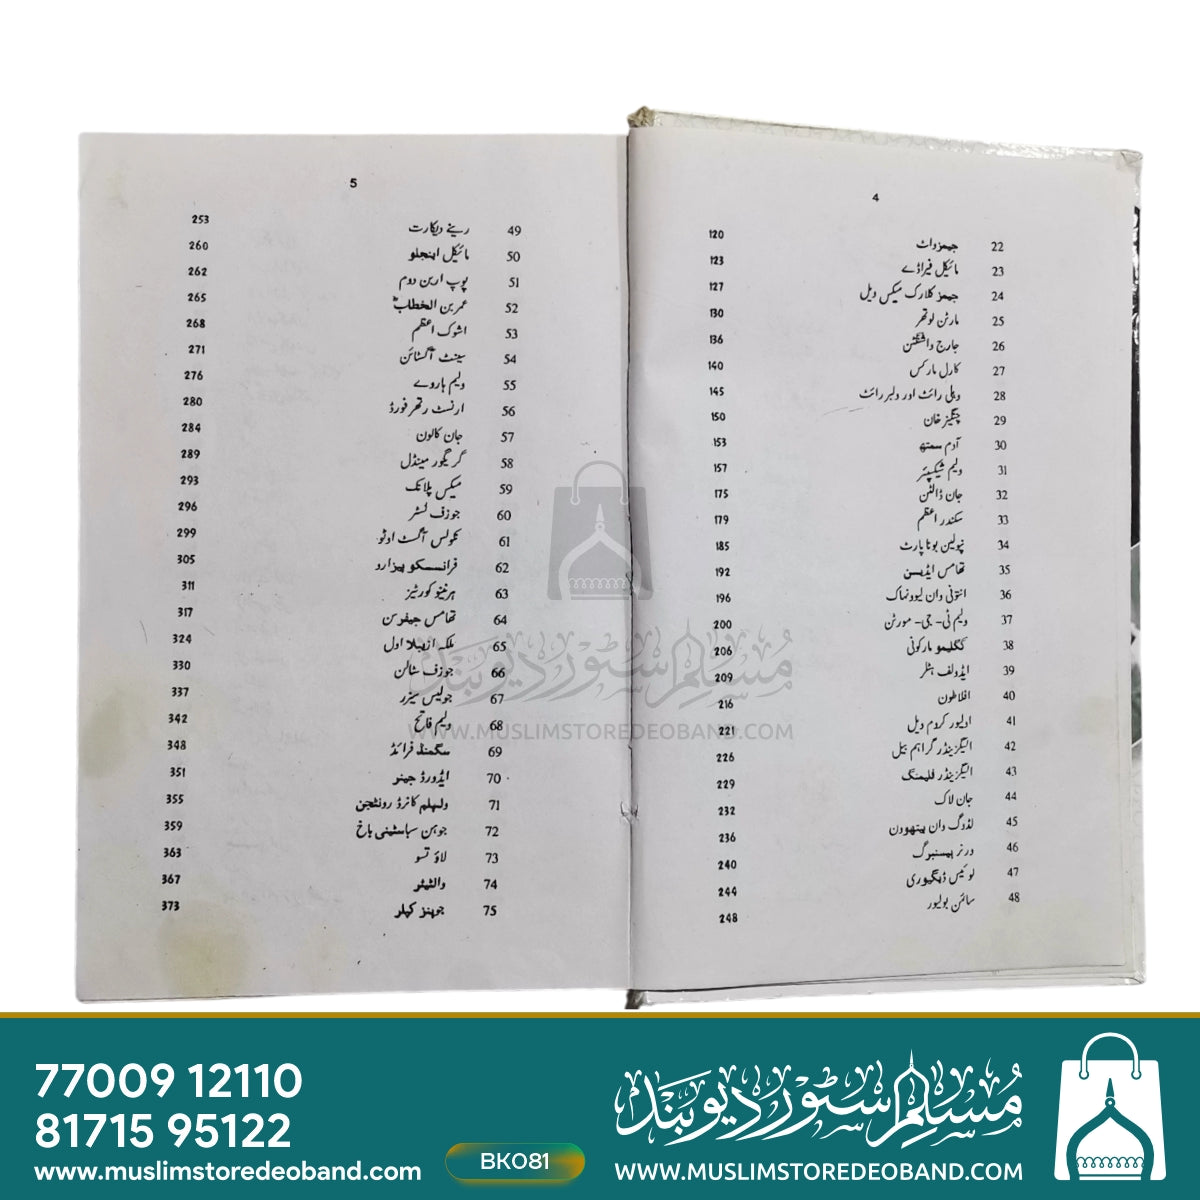 4
22 جیمز واٹ 120
23 مائیکل فیراڈے 123
24 جیمز کلارک میکس ویل 127
25 مارٹن لوتھر 130
26 جارج واشنگٹن 136
27 کارل مارکس 140
28 ویلی رائٹ اور ولبر رائٹ 145
29 چنگیز خان 150
30 آدم سمتھ 153
31 ولیم شیکسپئیر 157
32 جان ڈالٹن 175
33 سکندر اعظم 179
34 نپولین بونا پارٹ 185
35 تھامس ایڈیسن 192
36 انتونی وان لیوونہاک 196
37 ولیم ٹی- جی- مورٹن 200
38 گگلیمو مارکونی 206
39 ایڈولف ہٹلر 209
40 افلاطون 216
41 اولیور کروم ویل 221
42 الیگزینڈر گراہم بیل 226
43 الیگزینڈر فلیمنگ 229
44 جان لاک 232
45 لڈوگ وان بیتھوون 236
46 ورنر ہیسنبرگ 240
47 لوئیس ڈیگیوری 244
48 سائمن بولیور 248
5
49 رینے ڈیکارت 253
50 مائیکل اینجلو 260
51 پوپ اربن دوم 262
52 عمر بن الخطاب 265
53 اشوک اعظم 268
54 سینٹ آگسٹائن 271
55 ولیم ہاروے 276
56 ارنسٹ رتھر فورڈ 280
57 جان کالون 284
58 گریگور مینڈل 289
59 میکس پلانک 293
60 جوزف لسٹر 296
61 نکولس آگسٹ اوٹو 299
62 فرانسسکو پیزارو 305
63 ہرنینڈو کورٹیز 311
64 تھامس جیفرسن 317
65 ملکہ ازبیلا اول 324
66 جوزف سٹالن 330
67 جولیس سیزر 337
68 ولیم فاتح 342
69 سگمنڈ فرائڈ 348
70 ایڈورڈ جینر 351
71 ولہلم کانرڈ رونٹجن 355
72 جوہن سباسٹینی باخ 359
73 لاؤ تسو 363
74 والٹیئر 367
75 جوہنز کپلر 373
مسلم سٹور دیوبند
WWW.MUSLIMSTOREDEOBAND.COM
77009 12110
81715 95122
www.muslimstoredeoband.com
BK081
مسلم سٹور دیوبند
WWW.MUSLIMSTOREDEOBAND.COM